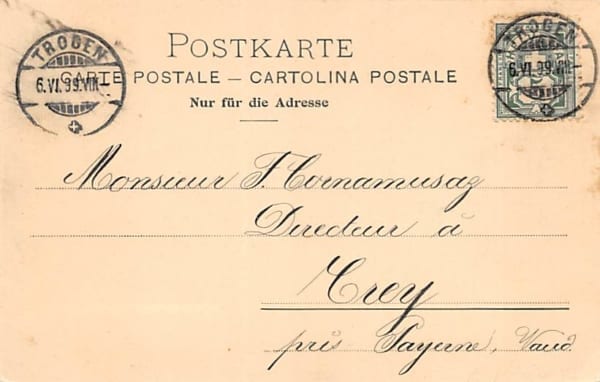 POSTKARTE
CARTE POSTALE — CARTOLINA POSTALE
Nur für die Adresse
TROGEN
6.VI.99.VIII-
TROGEN
6.VI.99.VIII-
Monsieur F. Cornamusaz
Directeur à
Trey
près Payerne, Vaud.